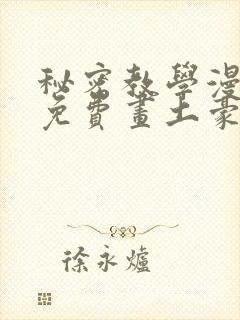 秘密教學漫
免費畫土豪
徐永爐